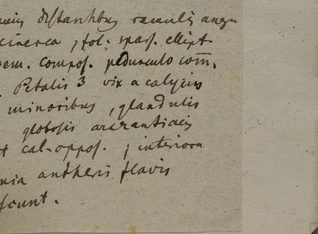 distantibus ramulis angu
cinerea, fol: spars. ellipt
rem. compos. pedunculo com.
Petalis 3 vix a calycin
minoribus, glandulis
globosis aurantiacis
t cal. oppos. ; interiora
nia antheris flavis
scunt.